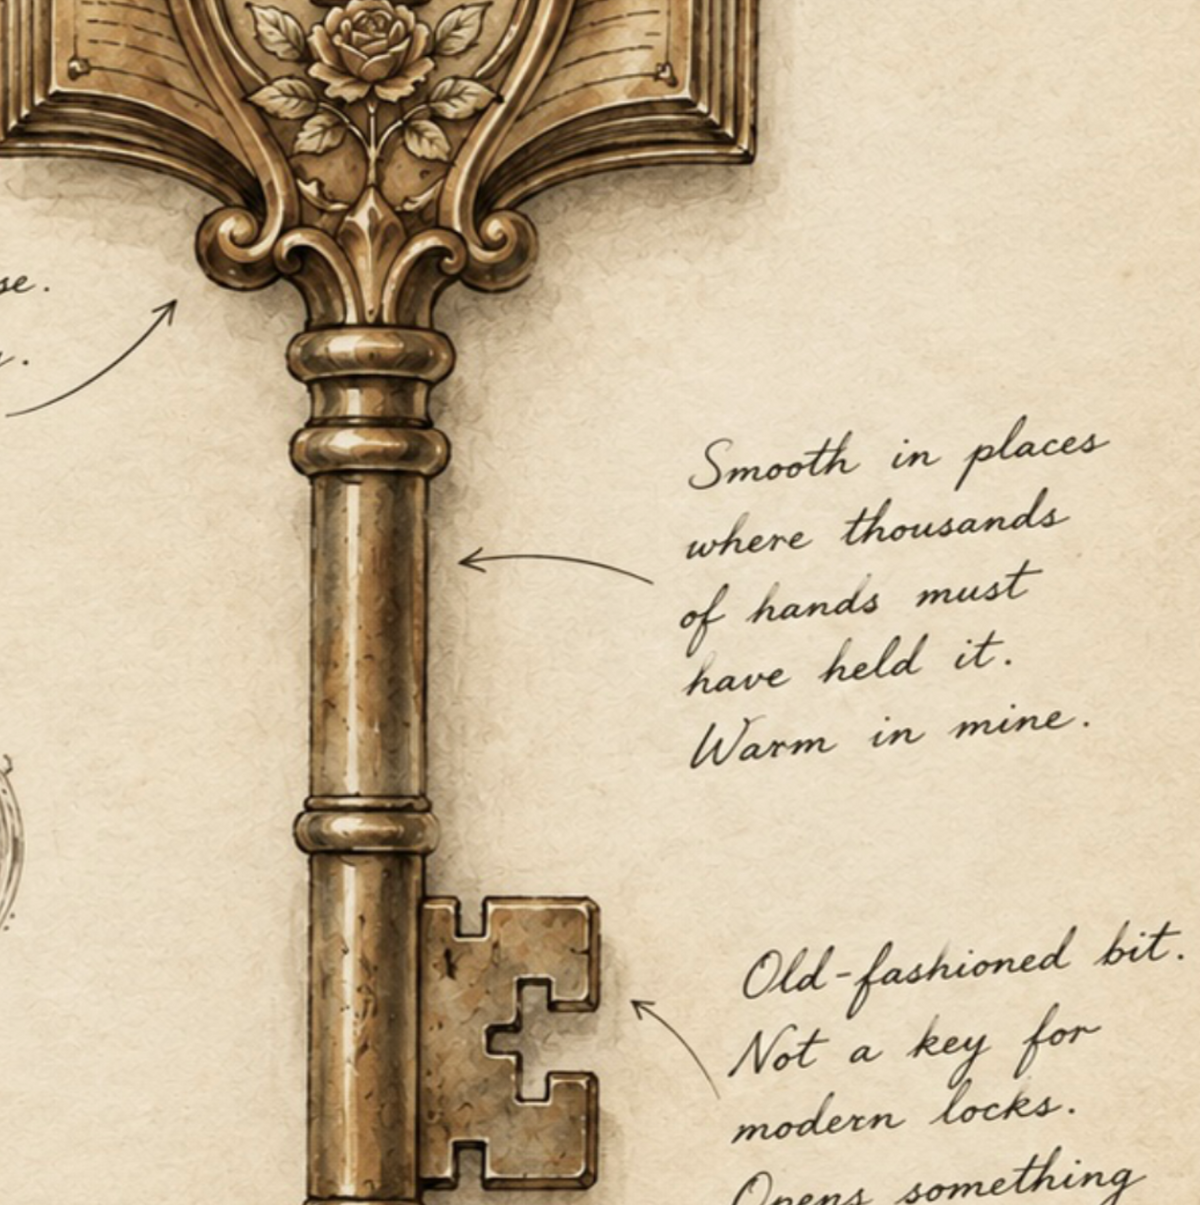 Smooth in places
where thousands
of hands must
have held it.
Warm in mine.
Old-fashioned bit.
Not a key for
modern locks.
Opens something